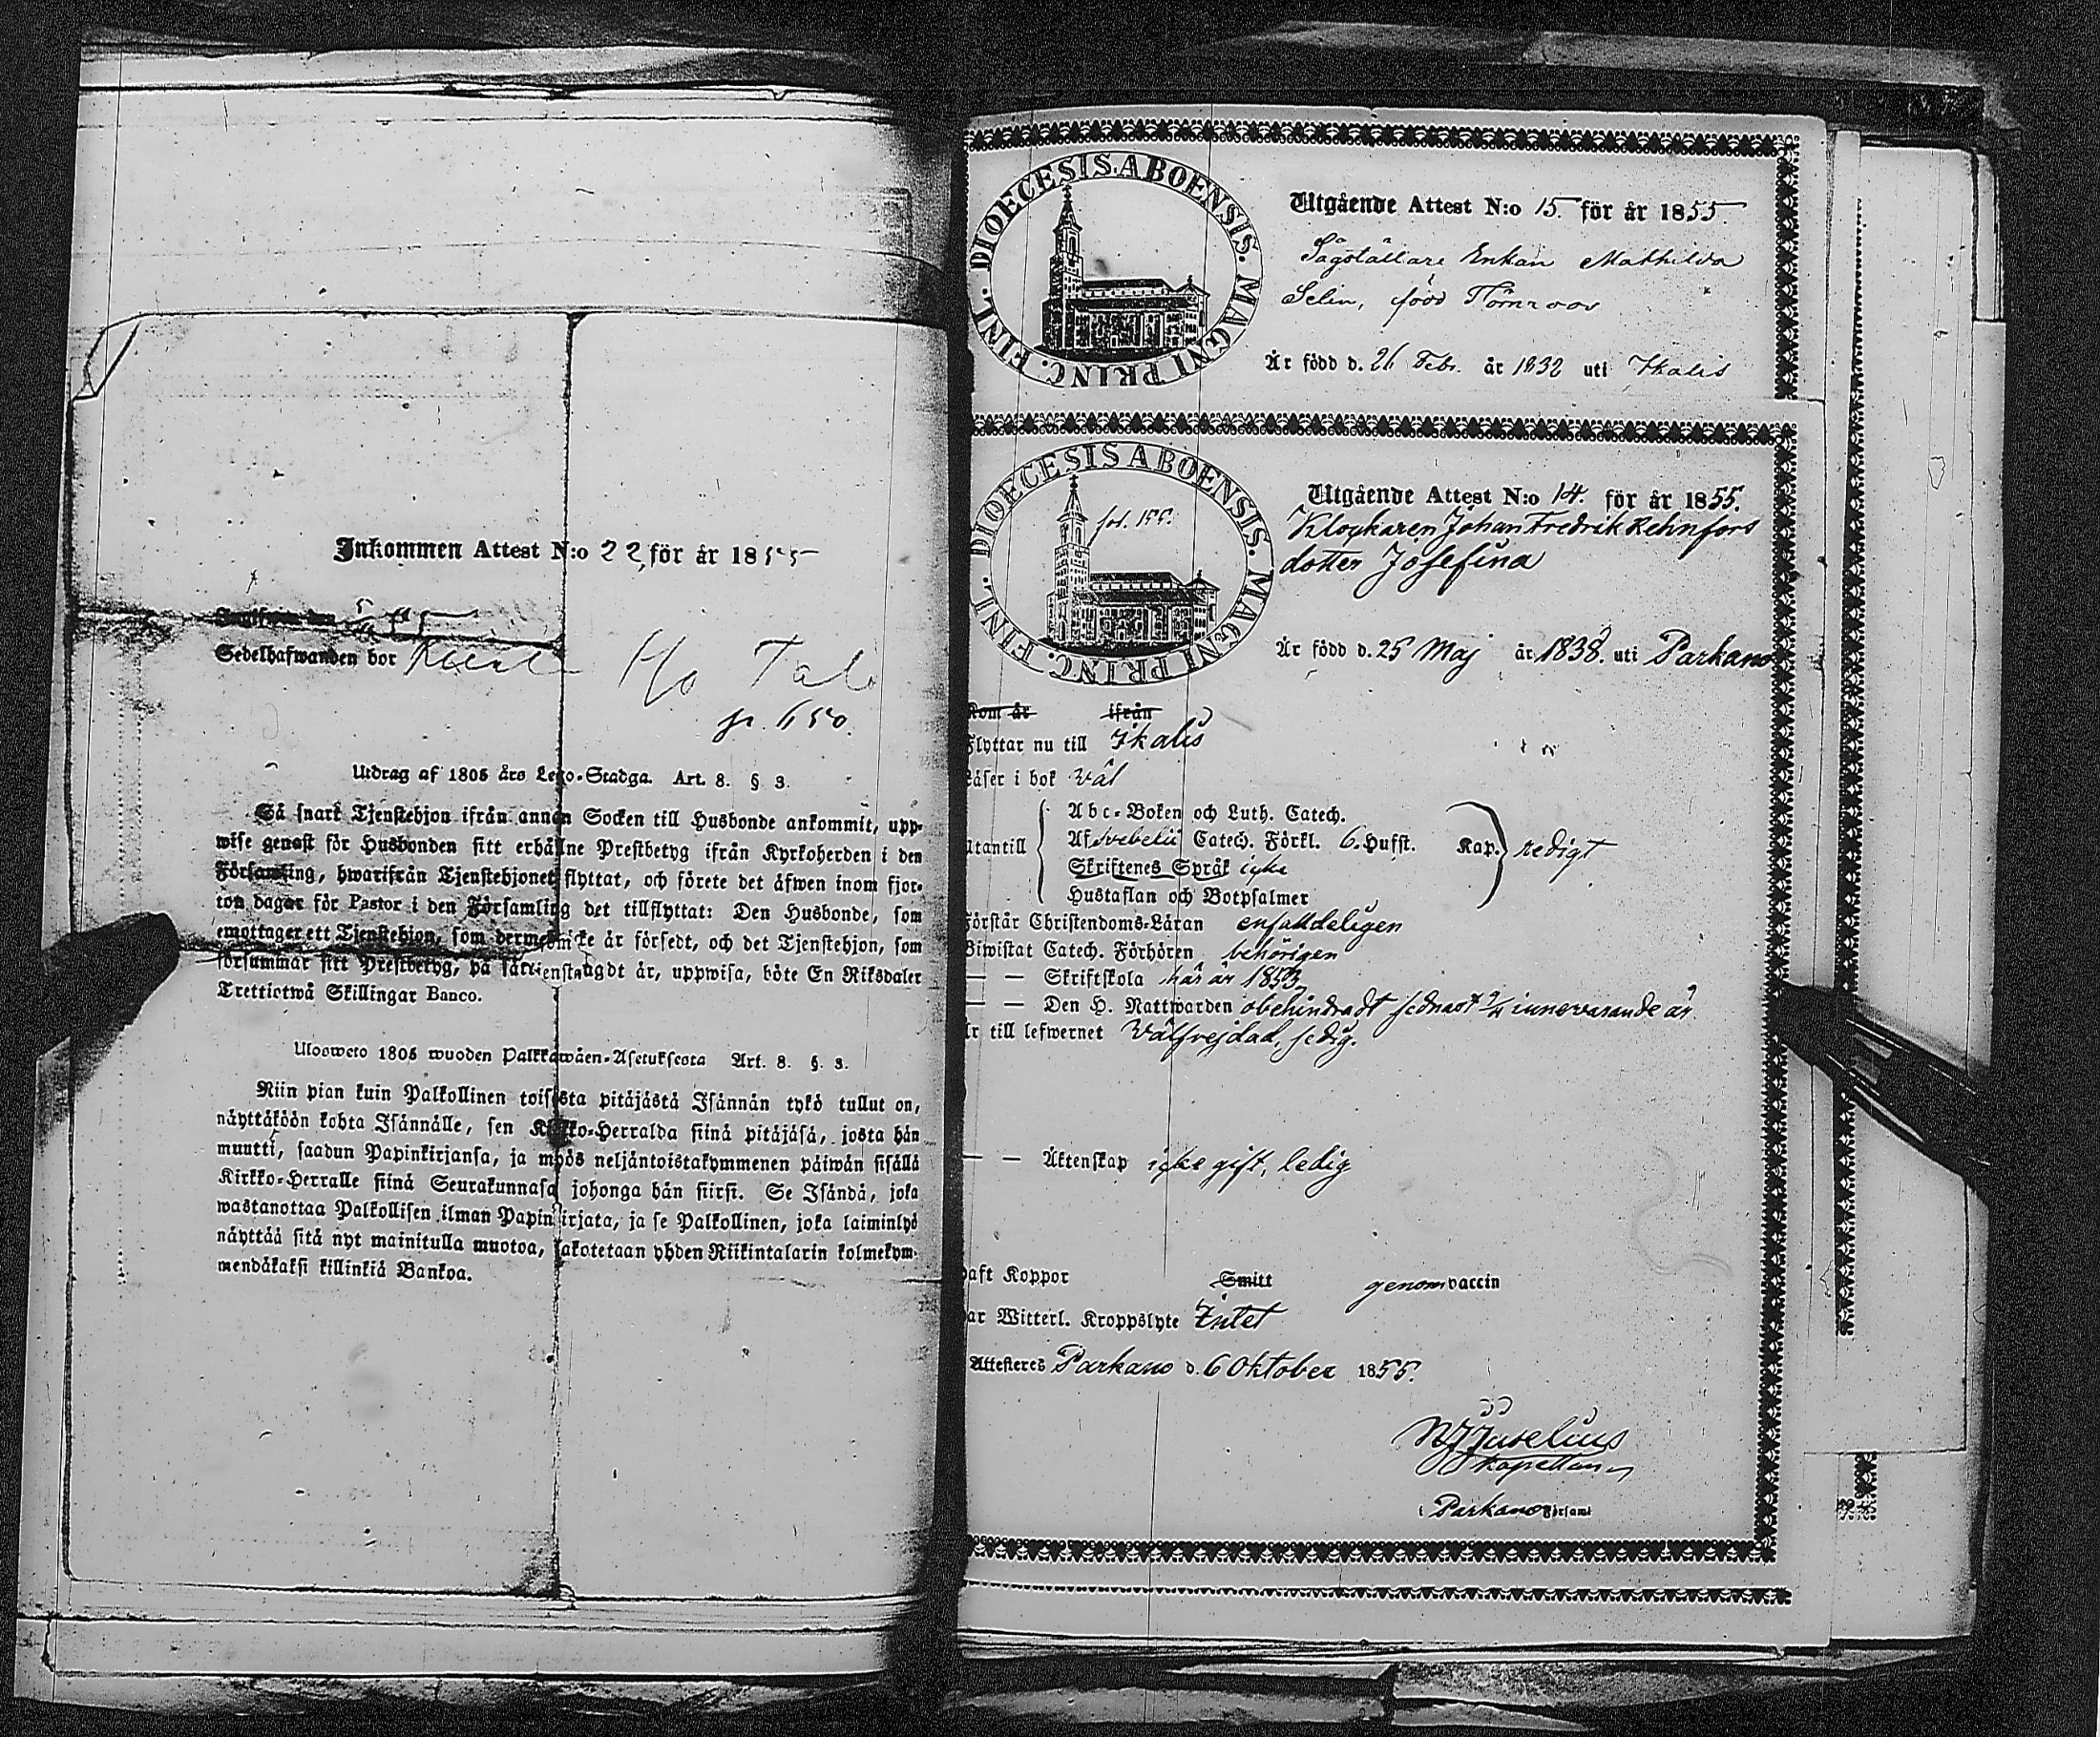 Inkommen Attest N:o 22 för år 1855
Sedelhafwanden bor
p. 650.
Utdrag af 1805 års Lego-Stadga. Art. 8. § 3.
Så snart Tjenstehjon ifrån annan Socken till Husbonde ankommit, upp-
wise genast för Husbonden sitt erhållne Prestbetyg ifrån Kyrkoherden i den
Församling, hwarifrån Tjenstehjonet flyttat, och förete det äfwen inom fjor-
ton dagar för Pastor i den Församling det tillflyttat: Den Husbonde, som
emottager ett Tjenstehjon, som dermed icke är försedt, och det Tjenstehjon, som
försummar sitt Prestbetyg, på sätt är, uppwisa, böte En Riksdaler
Trettiotwå Skillingar Banco.
Ulosweto 1805 wuoden Palkkawäen-Asetuksesta Art. 8. §. 3.
Niin pian kuin Palkollinen toisesta pitäjästä Isännän tykö tullut on,
näyttäköön kohta Isännälle, sen Kirkko-Herralda siinä pitäjäsä, josta hän
muutti, saadun Papinkirjansa, ja myös neljäntoistakymmenen päiwän sisällä
Kirkko-Herralle siinä Seurakunnasa johonga hän siirsi. Se Isändä, joka
wastanottaa Palkollisen ilman Papinkirjata, ja se Palkollinen, joka laiminlyö
näyttää sitä nyt mainitulla muotoa, sakotetaan yhden Riikintalarin kolmekym-
mendäkaksi killinkiä Bankoa.
DIOECESIS ABOENSIS. MAGNI PRINC. FINL.
Utgående Attest N:o 15. för år 1855
Sågställare Enkan Mathilda
Selin, född Törnroos
Är född d. 26 Febr. år 1832 uti Ikalis
DIOECESIS ABOENSIS. MAGNI PRINC. FINL.
fol. 155.
Utgående Attest N:o 14. för år 1855.
Klockaren Johan Fredrik Rehnfors
dotter Josefina
Är född d. 25 Maj år 1838. uti Parkano
Kom år ifrån
Flyttar nu till Ikalis
Läser i bok väl
Utantill Abc-Boken och Luth. Catech.
Af Svebelii Catech. Förkl. 6. Hufst. Kap. redigt
Skriftenes Språk icke
Hustaflan och Botpsalmer
Förstår Christendoms-Läran enfaldeligen
Biwistat Catech. Förhören behörigen
— — Skriftskola här år 1853
— — Den H. Nattwarden obehindradt sednast innevarande år
Är till lefwernet Välfrejdad, sedig.
— — Äktenskap icke gift, ledig
Haft Koppor Smitt genom vaccin
Har Witterl. Kroppslyte Intet
Attesteres Parkano d. 6 Oktober 1855.
Juselius
Kapellan
i Parkano Förs:aml